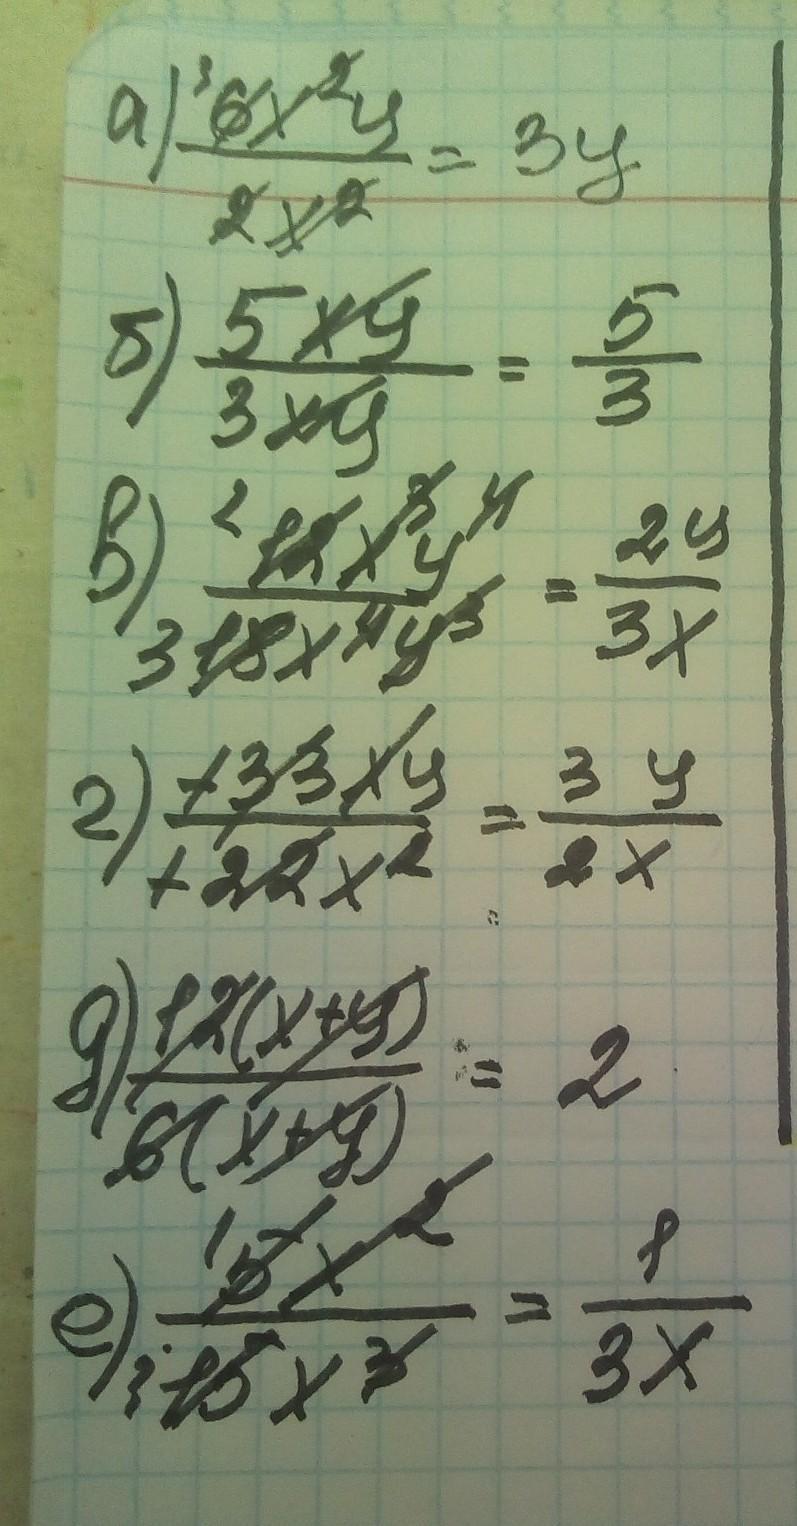 а) 6x²y / 2x² = 3y
б) 5xy / 3xy = 5 / 3
в) 12x³y⁴ / 18x⁴y³ = 2y / 3x
г) +33xy / +22x² = 3y / 2x
д) 12(x+y) / 6(x+y) = 2
е) 5x² / 15x³ = 1 / 3x